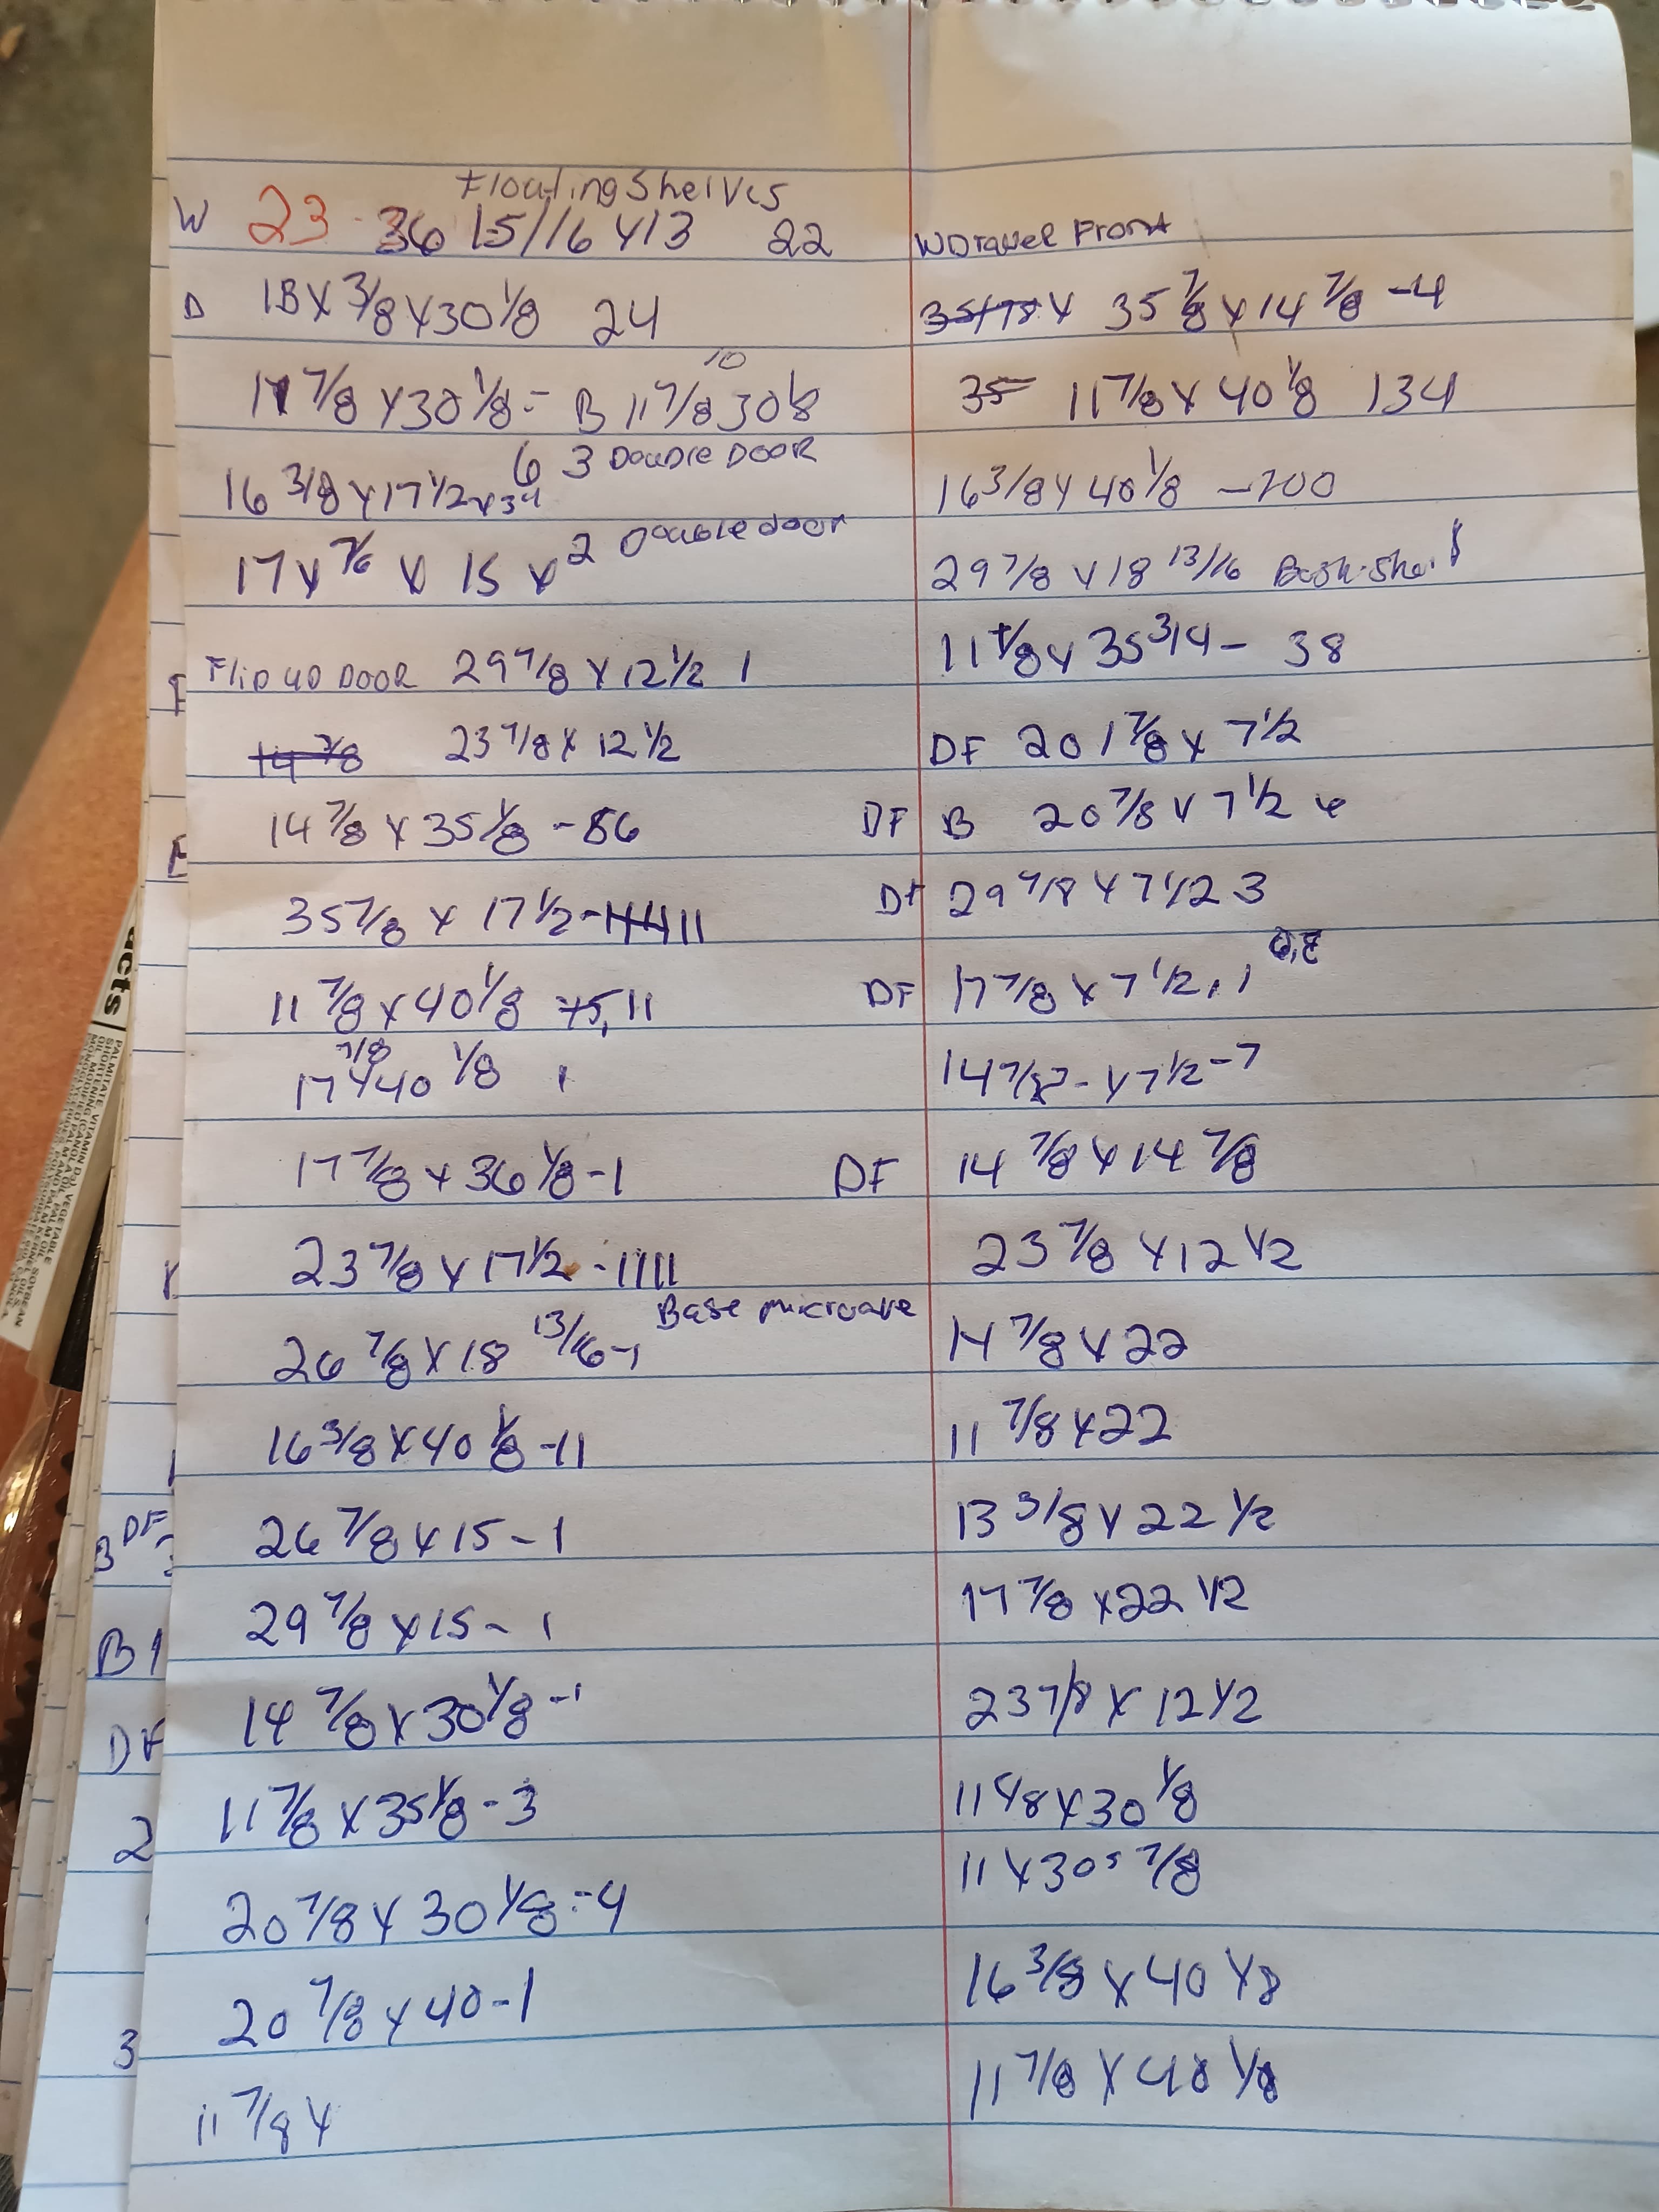 Floating Shelves
W 23 36 15/16 x 13 22
D 18 x 3/8 x 30 1/8 24
11 7/8 x 30 1/8 = B 11 7/8 30 1/8
10
16 3/8 x 17 1/2 x 34 6 3 Double DOOR
17 x 7/8 x 15 x 2 Double door
Flip up DOOR 29 7/8 x 12 1/2 1
14 7/8 23 7/8 x 12 1/2
14 7/8 x 35 1/8 - 86
35 7/8 x 17 1/2 - 1111 11
11 7/8 x 40 1/8 75, 11
17 7/8 x 40 1/8 1
17 7/8 x 36 1/8 - 1
23 7/8 x 17 1/2 - 1111
26 7/8 x 18 13/16 - 1 Base microwave
16 3/8 x 40 1/8 - 11
26 7/8 x 15 - 1
29 7/8 x 15 - 1
14 7/8 x 30 1/8 - 1
11 7/8 x 35 1/8 - 3
20 7/8 x 30 1/8 = 4
20 7/8 x 40 - 1
11 7/8 x
W Drawer Front
35 7/8 x 35 7/8 x 14 7/8 - 4
35 11 7/8 x 40 1/8 134
16 3/8 x 40 1/8 - 200
29 7/8 x 18 13/16
11 7/8 x 35 3/4 - 38
DF 20 1 7/8 x 7 1/2
DF B 20 7/8 x 7 1/2 4
DF 29 7/8 x 7 1/2 3
DF 17 7/8 x 7 1/2, 1
14 7/8 - x 7 1/2 - 7
DF 14 7/8 x 14 7/8
23 7/8 x 12 1/2
14 7/8 x 22
11 7/8 x 22
13 3/8 x 22 1/2
17 7/8 x 22 1/2
23 7/8 x 12 1/2
11 /8 x 30 1/8
11 x 30 7/8
16 3/8 x 40 1/8
11 7/8 x 40 1/8
acts
3 DF
B 1
DF
2
3